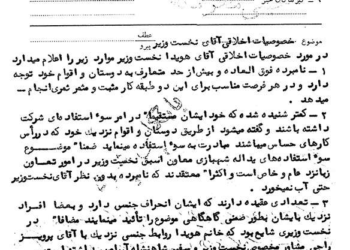 ۱ - گیرندگان خبر
عطف
پیرو
موضوع خصوصیات اخلاقی آقای نخست وزیر
در مورد خصوصیات اخلاقی آقای هویدا نخست وزیر موارد زیر را اعلام میدارد
۱ - نامبرده فوق العاده و بیش از حد متعارف به دوستان و اقوام خود توجه
دارد و در هر فرصت مناسب برای این دو طبقه کار مثبت و مثمر ثمری انجام
میدهد.
۲ - کمتر شنیده شده که خود ایشان مستقیما در امر سو استفاده های شرکت
داشته باشند و گفته میشود از طریق دوستان و اقوام نزدیک خود که در رأس
کارهای حساس میباشند مبادرت به سو استفاده مینمایند ضمنا موضوع
سو استفاده های یداله شهبازی معاون اسبق نخست وزیر در امور تعاون
زبانزد عام و خاص است و اکثرا معتقدند که نامبرده بدون نظر آقای نخست وزیر
حتی آب نمیخورد.
۳ - تعدادی عقیده دارند که ایشان انحراف جنسی دارد و بعضا افراد
نزدیک بایشان بطور ضمنی گاهگاهی موضوع را تأیید مینمایند مضافا در
نخست وزیری شایع بود که خانم هویدا روابط جنسی نزدیک با آقای پرویز